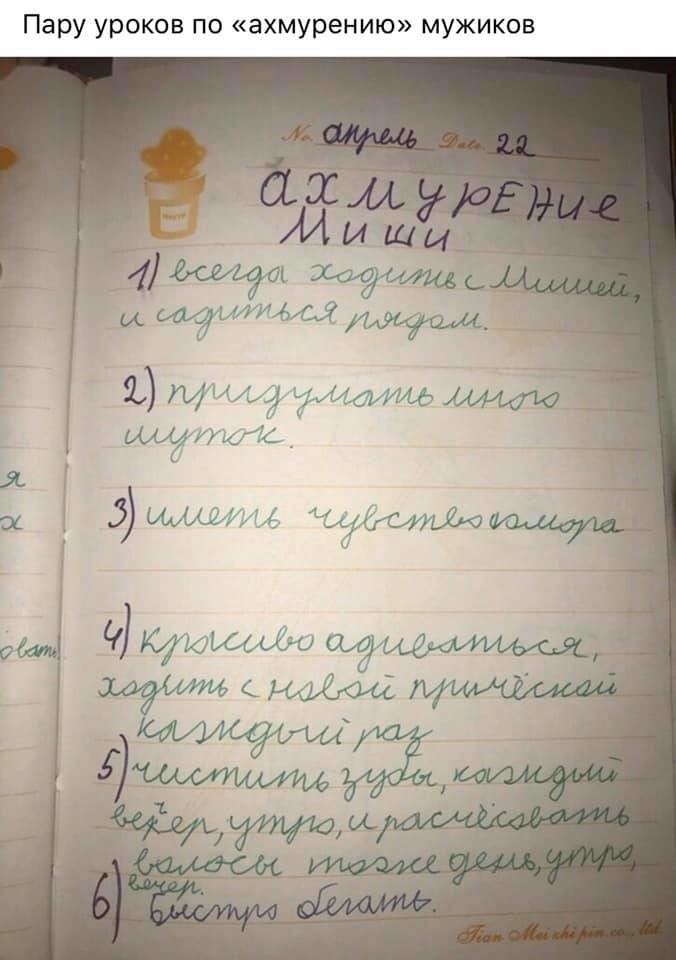 Пару уроков по «ахмурению» мужиков
No. апрель Date. 22
ахмурЕНие
Миши
1) всегда ходить с Мишей,
и садиться рядом.
2) придумать много
шуток.
3) иметь чувство юмора
я
х
4) красиво адиваться,
ходить с новой причёской
овать
каждый раз
5) чистить зубы, каждый
вечер, утро, и расчёсовать
волосы тоже день, утро,
вечер.
6) Быстро бегать.
Tian Mei zhi pin co., ltd.